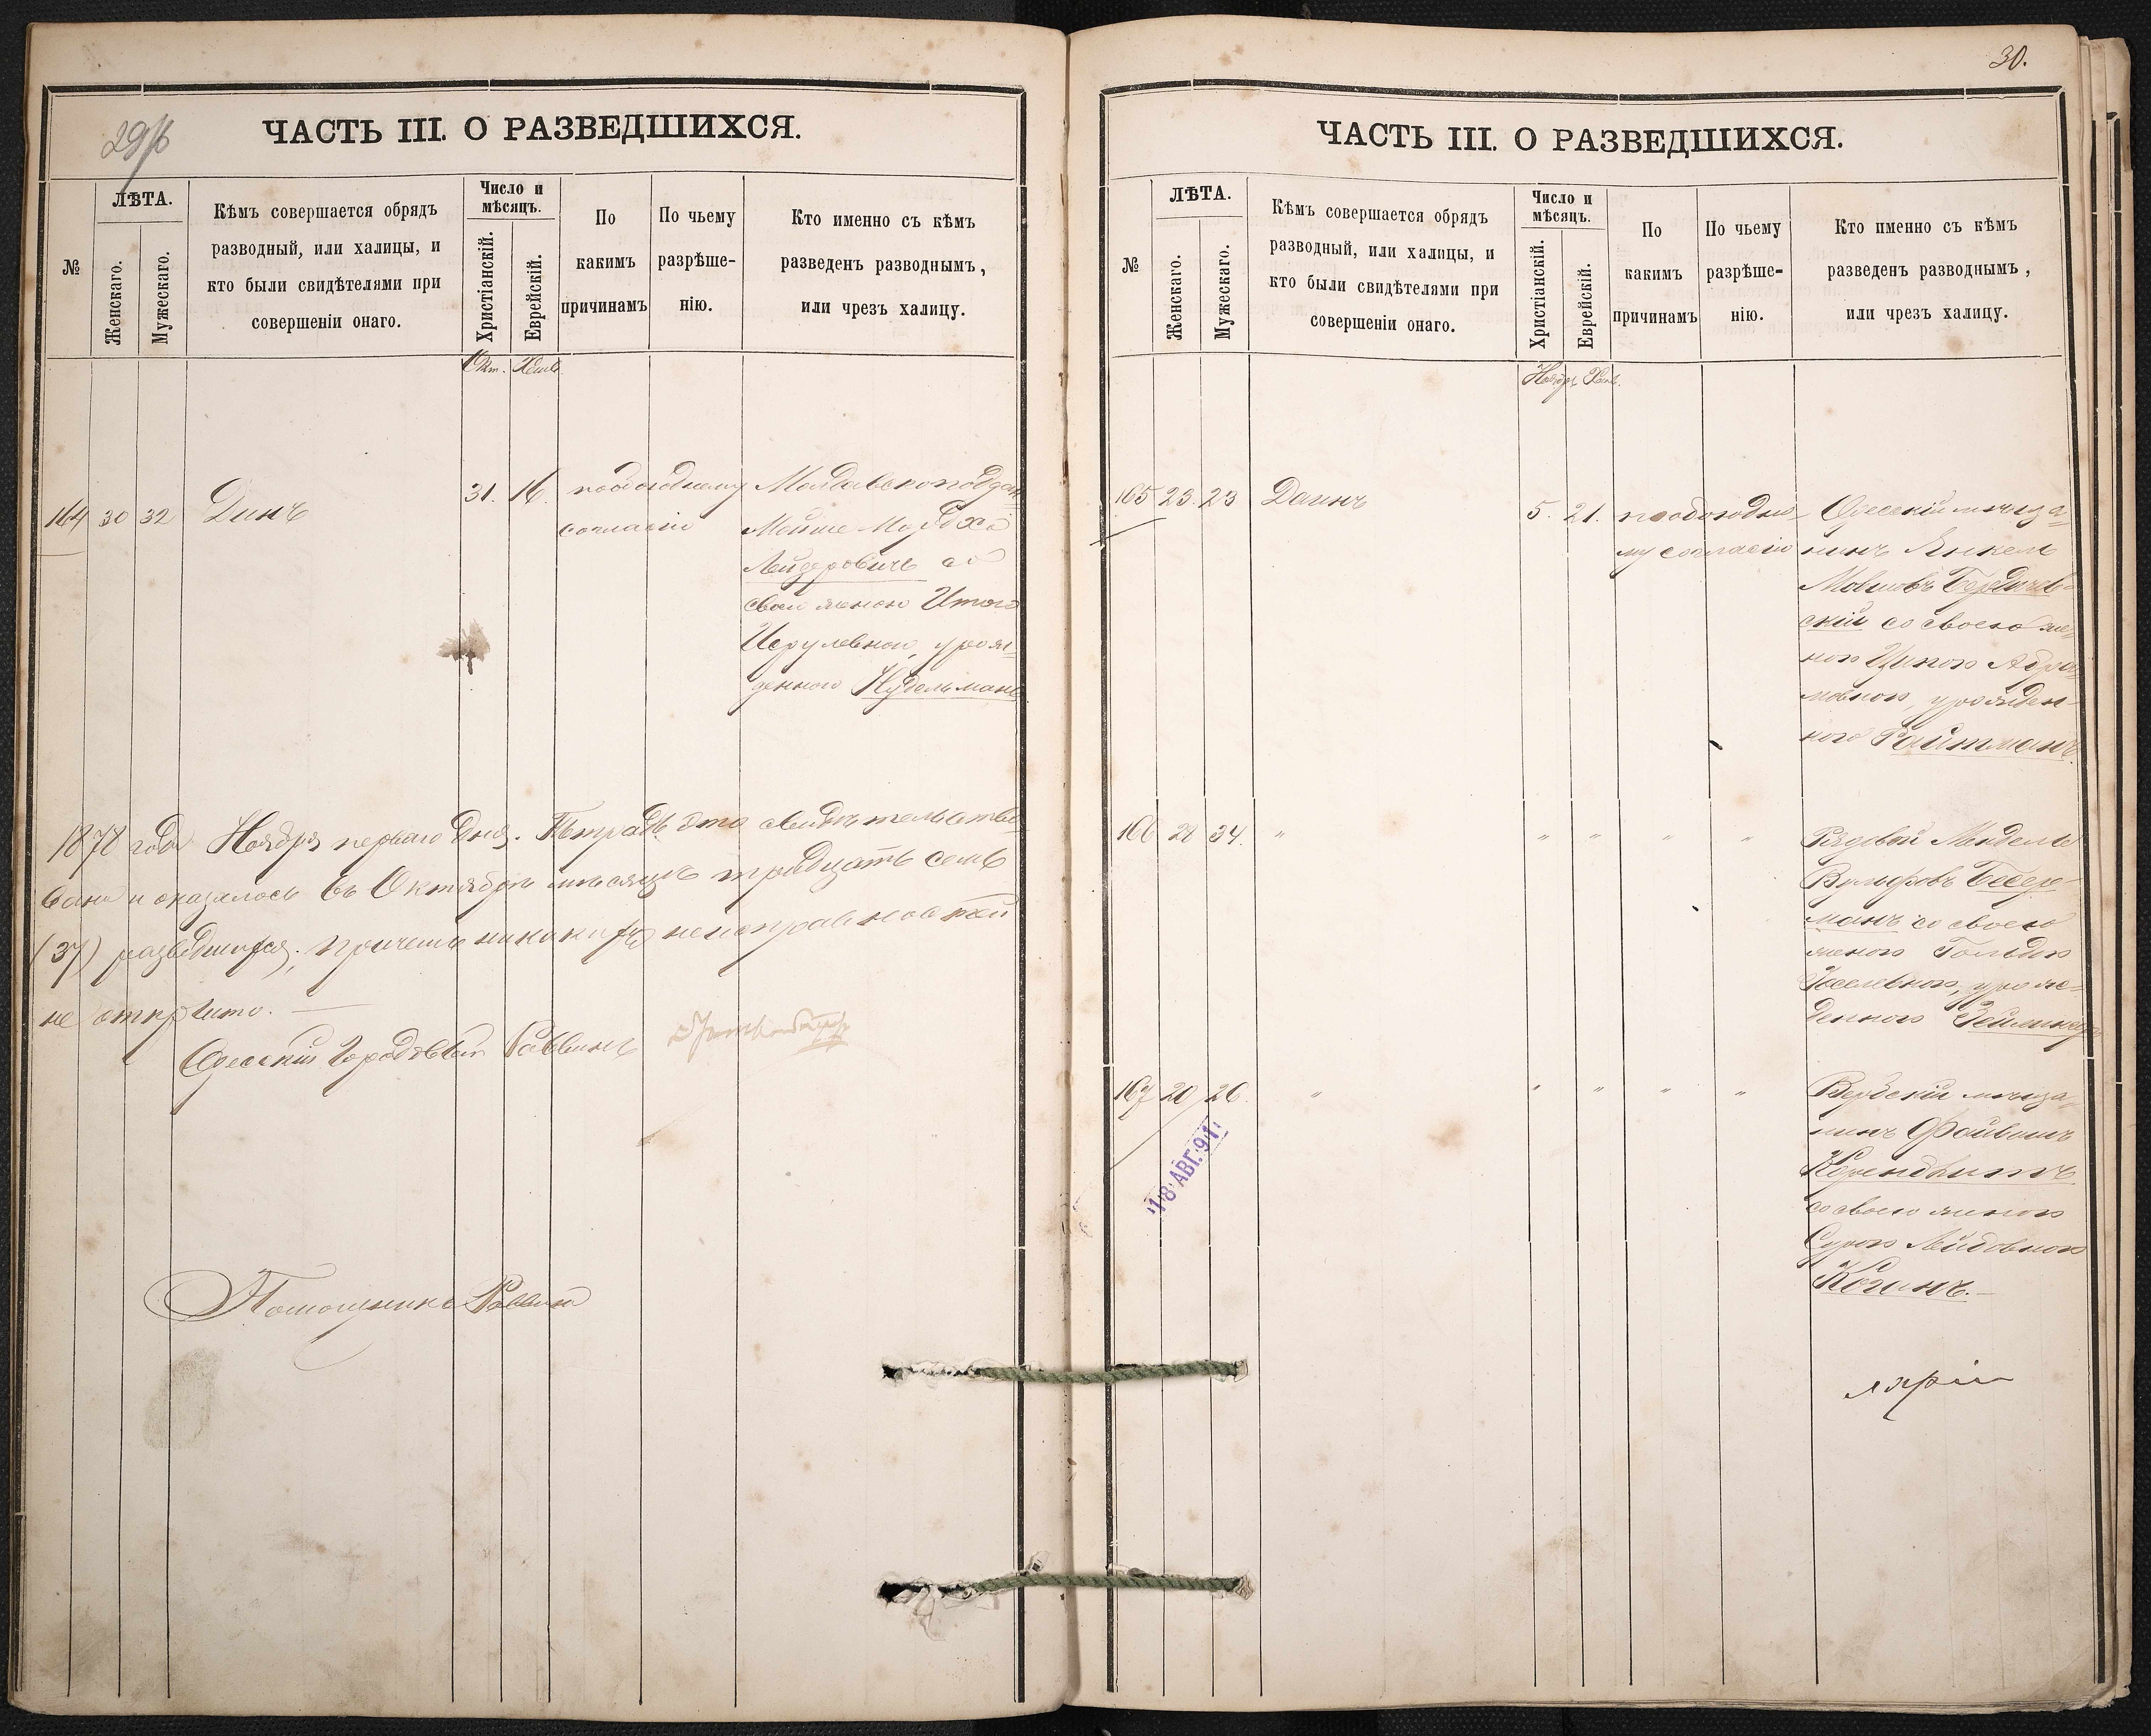 ЧАСТЬ III. О РАЗВЕДШИХСЯ.
№
ЛѢТА.
Женскаго.
Мужескаго.
Кѣмъ совершается обрядъ
разводный, или халицы, и
кто были свидѣтелями при
совершеніи онаго.
Число и
мѣсяцъ.
Христіанскій.
Еврейскій.
По
какимъ
причинамъ
По чьему
разрѣше-
нію.
Кто именно съ кѣмъ
разведенъ разводнымъ,
или чрезъ халицу.
Окт. Хешв.
164 30 32
31. 16. пообоюдному
согласію
Молдавскоподдан
Мойше Мордхо
Лейзеровичъ со
своей женою
Исрулевною, урож-
денного Нудельманъ
1878 года Ноября перваго дня. Тетрадь эта свидѣтельство-
вана и оказалось въ Октябрѣ мѣсяцѣ тридцать семь
(37) разведшихся, причемъ никакихъ неисправностей
не открыто. —
Одесскій Городовой Раввинъ
Помощникъ Раввина
30.
ЧАСТЬ III. О РАЗВЕДШИХСЯ.
№
ЛѢТА.
Женскаго.
Мужескаго.
Кѣмъ совершается обрядъ
разводный, или халицы, и
кто были свидѣтелями при
совершеніи онаго.
Число и
мѣсяцъ.
Христіанскій.
Еврейскій.
По
какимъ
причинамъ
По чьему
разрѣше-
нію.
Кто именно съ кѣмъ
разведенъ разводнымъ,
или чрезъ халицу.
Ноябрь Хешв.
165 23. 23 Даинъ
5. 21. пообоюдно-
му согласію
Одесскій мѣща-
нинъ Янкель
Мовшовъ Бердичев-
скій со своею же-
ною Ципою Абра-
мовною, урожден-
ного Ройтманъ.
166 28 34. " " " " "
Рядовой Мендель
Вульфовъ
манъ со своею
женою Гольдою
Іоселевною, урож-
денного
167 20 26. " " " " "
Вербскій мѣща-
нинъ Файвишъ
Коренблитъ
со своею женою
Сурою Лейбовною
Коганъ. —
18 АВГ. 91